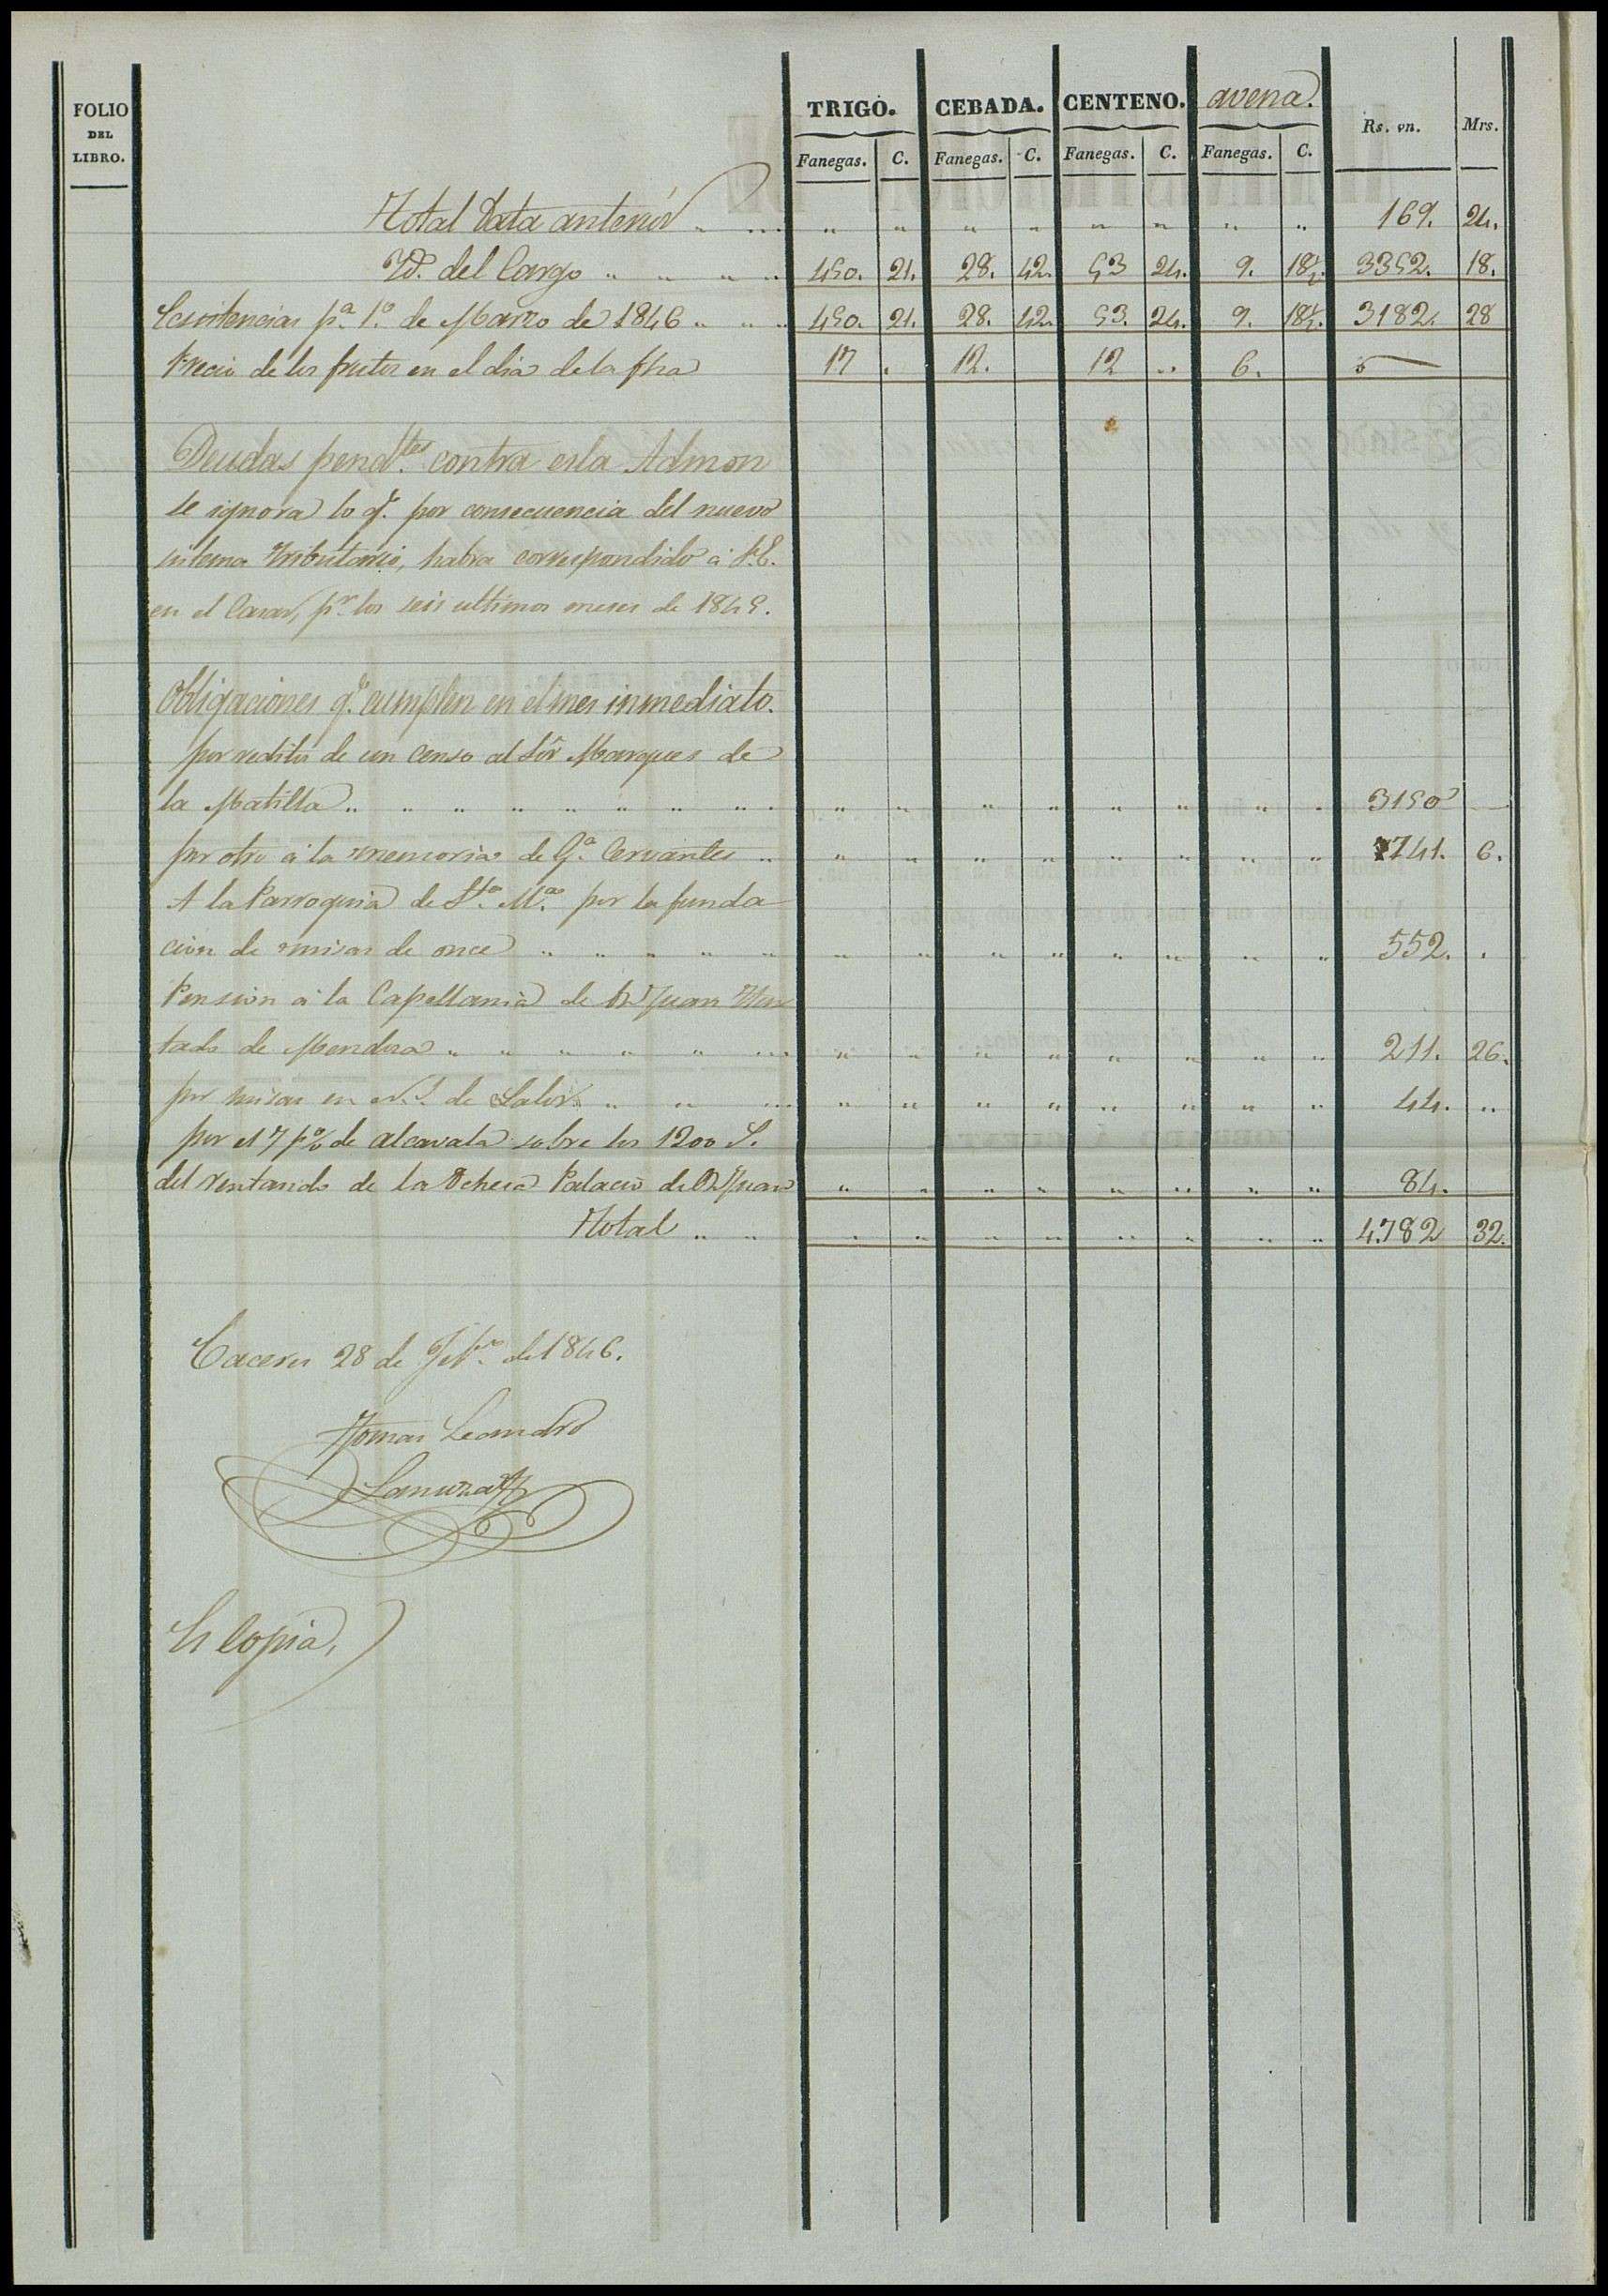 FOLIO DEL LIBRO.
TRIGO. CEBADA. CENTENO. avena.
Fanegas. C. Fanegas. C. Fanegas. C. Fanegas. C. Rs. vn. Mrs.
Total Data anterior 169. 24.
Yd. del Cargo 450. 21. 28. 42. 53 24. 9. 18½. 3352. 18.
Escistencias pª. 1º. de Marzo de 1846 450. 21. 28. 42. 53. 24. 9. 18½. 3182. 28
Precio de los frutos en el dia de la fha 17 12. 12 6.
Deudas pendtes. contra esta Admon
Se ignora lo q. por consecuencia del nuevo
sistema tributario, habra correspondido á S.E.
en el Casar, pr. los seis ultimos meses de 1845.
Obligaciones qe. cumplen en el mes inmediato.
por reditos de un censo al Sor Marques de
la Matilla 3150
por otro á la memoria de Gª. Cervantes 741. 6.
A la Parroquia de Sta. Mª. por la funda
cion de misas de once 552.
Pension á la Capellania de Dn Juan Hur
tado de Mendoza 211. 26.
por misas en N.S. de Salor 44.
por el 7 p% de alcavala sobre los 1200 S.
del rentando de la Dehesa Palacio de Dn Juan 84.
Total 4.782 32.
Caceres 28 de Febro. de 1846.
Tomas Leandro
Lanuza
Es Copia,